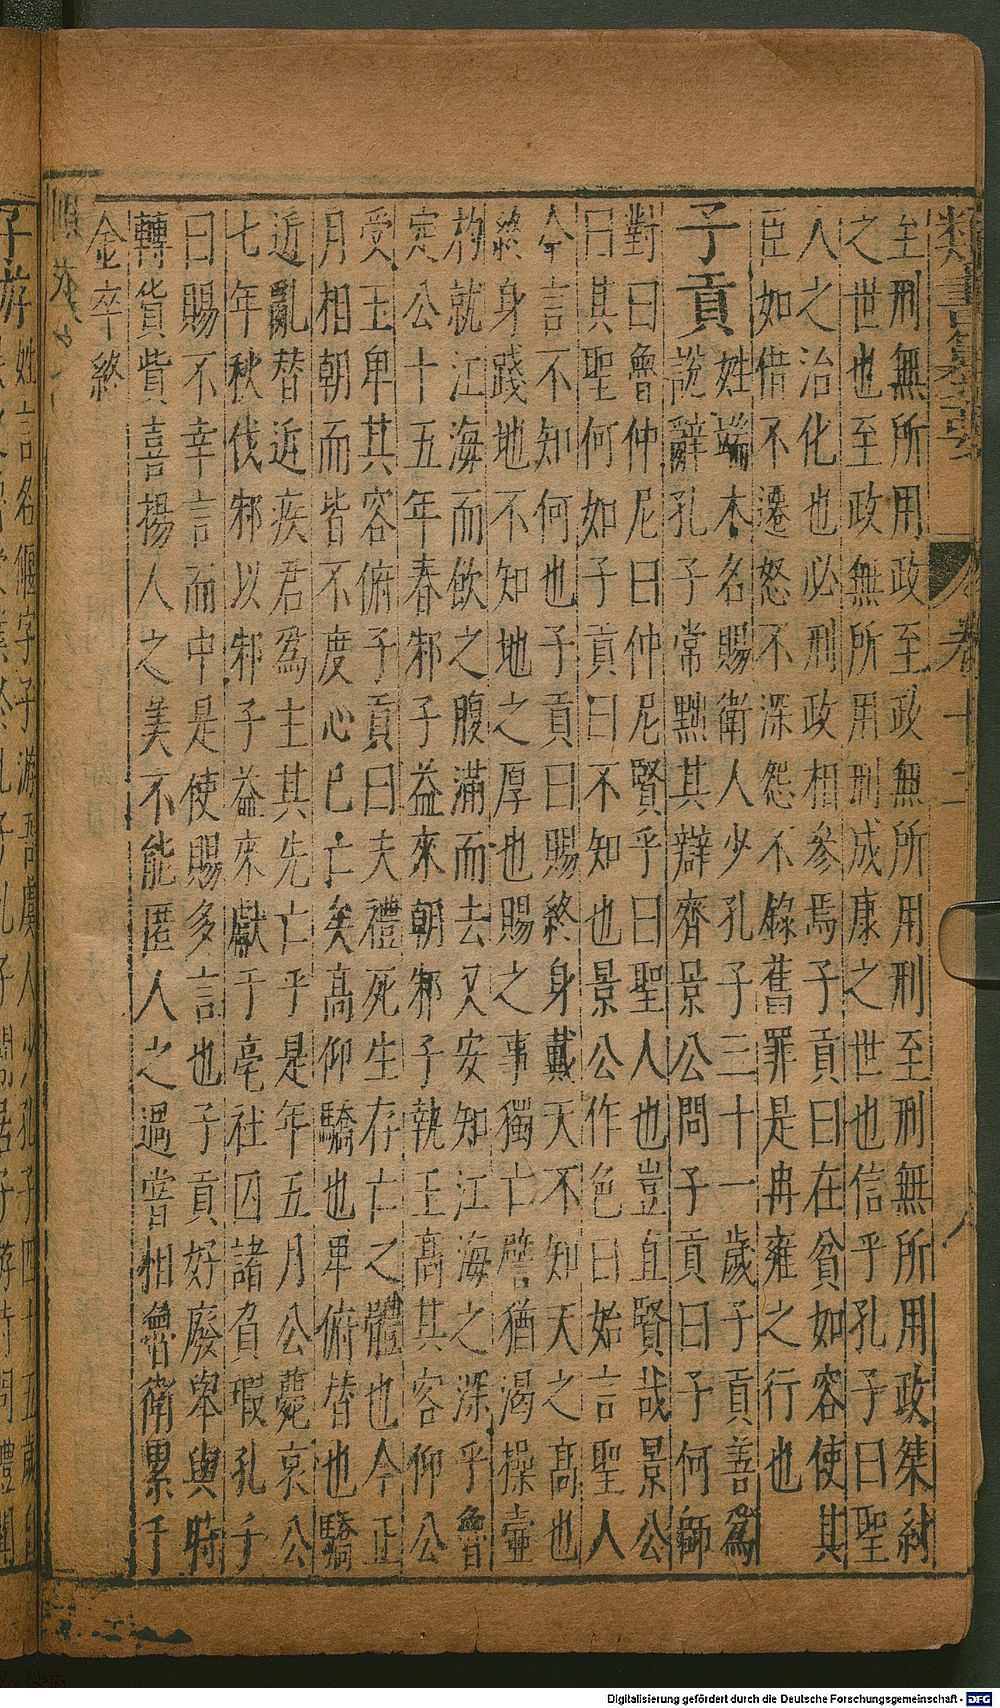 至刑無所用政至政無所用刑至刑無所用政桀紂
之世也至政無所用刑成康之世也信乎孔子曰聖
人之治化也必刑政相參焉子貢曰在貧如容使其
臣如借不遷怒不深怨不錄舊罪是冉雍之行也
子貢姓端木名賜衛人少孔子三十一歲子貢善爲
說辭孔子常黜其辯齊景公問子貢曰子何師
對曰魯仲尼曰仲尼賢乎曰聖人也豈直賢哉景公
曰其聖何如子貢曰不知也景公作色曰始言聖人
今言不知何也子貢曰賜終身戴天不知天之高也
終身踐地不知地之厚也賜之事獨亡譬猶渴操壺
杓就江海而飲之腹滿而去又安知江海之深乎魯
定公十五年春邾子益來朝邾子執玉高其容仰公
受玉卑其容俯子貢曰夫禮死生存亡之體也今正
月相朝而皆不度心已亡矣高仰驕也卑俯替也驕
近亂替近疾君爲主其先亡乎是年五月公薨哀公
七年秋伐邾以邾子益來獻于亳社囚諸負瑕孔子
曰賜不幸言而中是使賜多言也子貢好廢舉與時
轉貨貲喜揚人之美不能匿人之過嘗相魯衛累千
金卒終
卷十二
Digitalisierung gefördert durch die Deutsche Forschungsgemeinschaft - DFG